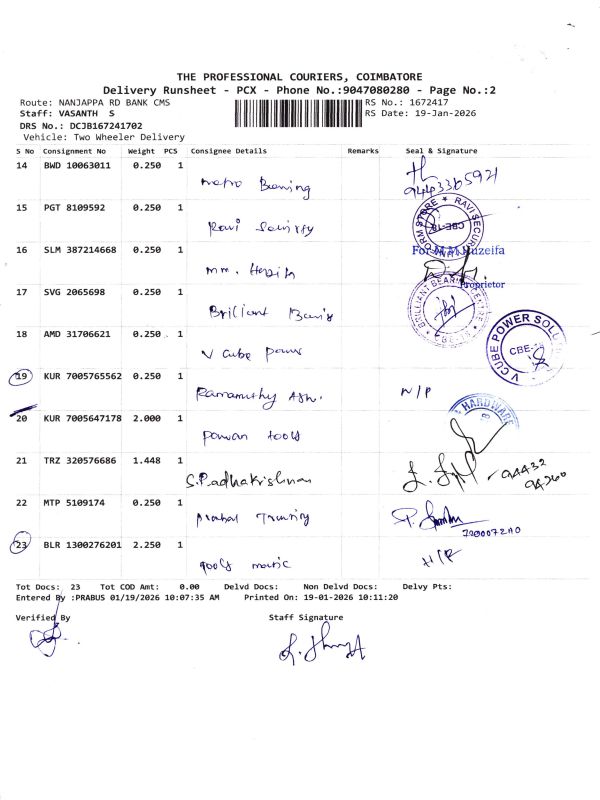 THE PROFESSIONAL COURIERS, COIMBATORE
Delivery Runsheet - PCX - Phone No.:9047080280 - Page No.:2
Route: NANJAPPA RD BANK CMS RS No.: 1672417
Staff: VASANTH S RS Date: 19-Jan-2026
DRS No.: DCJB167241702
Vehicle: Two Wheeler Delivery
S No Consignment No Weight PCS Consignee Details Remarks Seal & Signature
14 BWD 10063011 0.250 1
metro Bearing
9443365921
15 PGT 8109592 0.250 1
Ravi
RAVI SECURI FORM STORE CBE-18
16 SLM 387214668 0.250 1
mm.
For M.M.Huzeifa
Proprietor
17 SVG 2065698 0.250 1
Brilliant
BRILLIANT BEARING CENTRE
18 AMD 31706621 0.250 1
V Cube Power
V CUBE POWER SOLU CBE-18
19 KUR 7005765562 0.250 1
Ramamuthy N/P
20 KUR 7005647178 2.000 1
Pawan tools
HARDWARE
21 TRZ 320576686 1.448 1
S.Radhakrishnan
94432
94260
22 MTP 5109174 0.250 1
23 BLR 1300276201 2.250 1
tools matic
Tot Docs: 23 Tot COD Amt: 0.00 Delvd Docs: Non Delvd Docs: Delvy Pts:
Entered By :PRABUS 01/19/2026 10:07:35 AM Printed On: 19-01-2026 10:11:20
Verified By Staff Signature